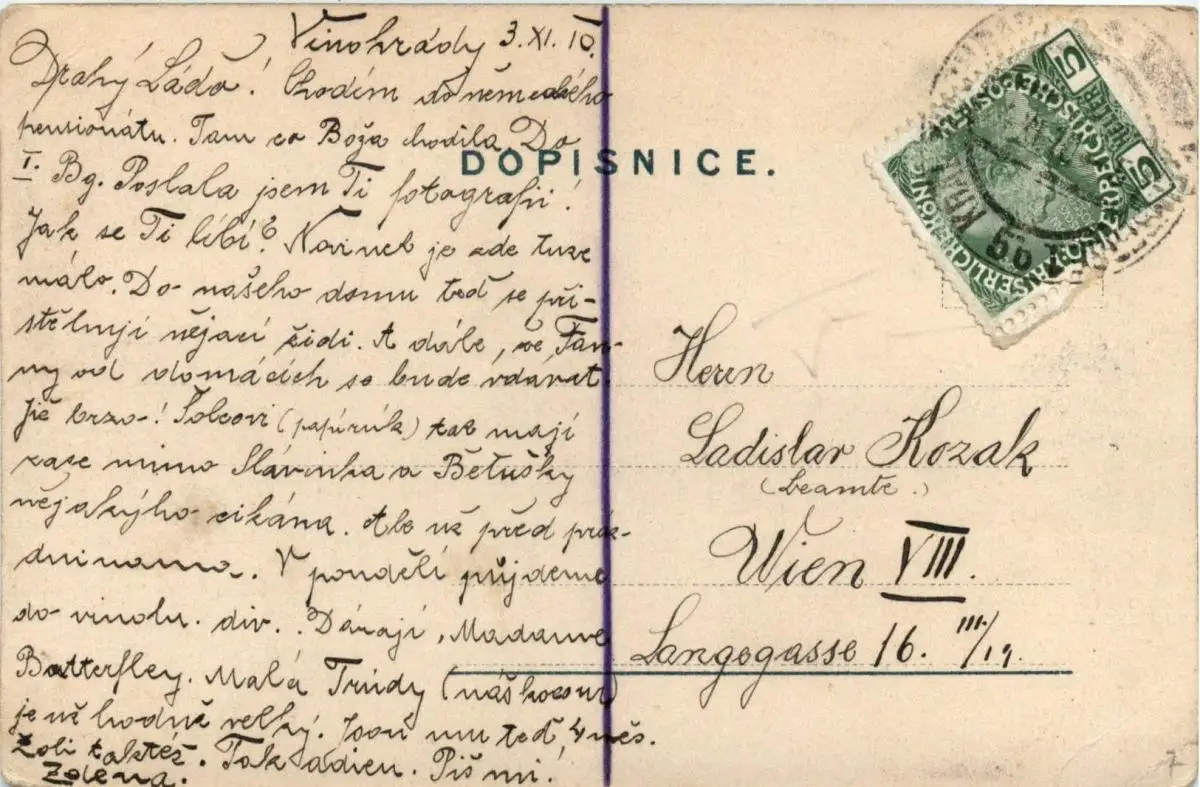 Vinohrády 3.XI.10.
Drahý Láďo! Chodím do německého
pensionátu. Tam co Boža chodila. Do
I. Bg. Poslala jsem Ti fotografii!
Jak se Ti líbí? Novinek je zde tuze
málo. Do našeho domu teď se při-
stěhují nějací židi. A dále, že Fan-
ny od domácích se bude vdávat.
Již brzo! Šolcovi (papírník) tak mají
zase mimo Slávinka a Bětušky
nějakýho cikána. Ale už před práz-
dninama. V pondělí půjdeme
do vinohr. div. Dávají „Madame
Butterfley. Malá Trúdy (náš kocour)
je už hodně velký. Jsou mu teď 4 měs.
Žoli taktéž. Tak adieu. Piš mi!
Zdena.
DOPISNICE.
5 HELLER 5
KAISERLICHE KÖNIGLICHE ÖSTERREICHISCHE POST
5b
Herrn
Ladislav Kozak
(beamte.)
Wien VIII.
Langegasse 16. III./19.